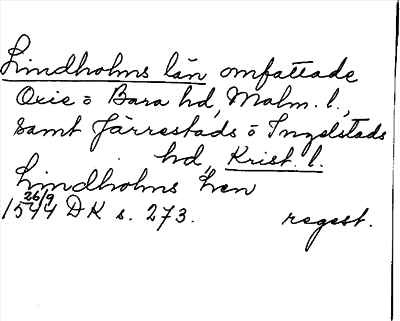 Lindholms län omfattade
Oxie o Bara hd, Malm. l.,
samt Järrestads o Ingelstads
hd, Krist. l.
Lindholms len
26/9
1544 DK s. 273. regest.